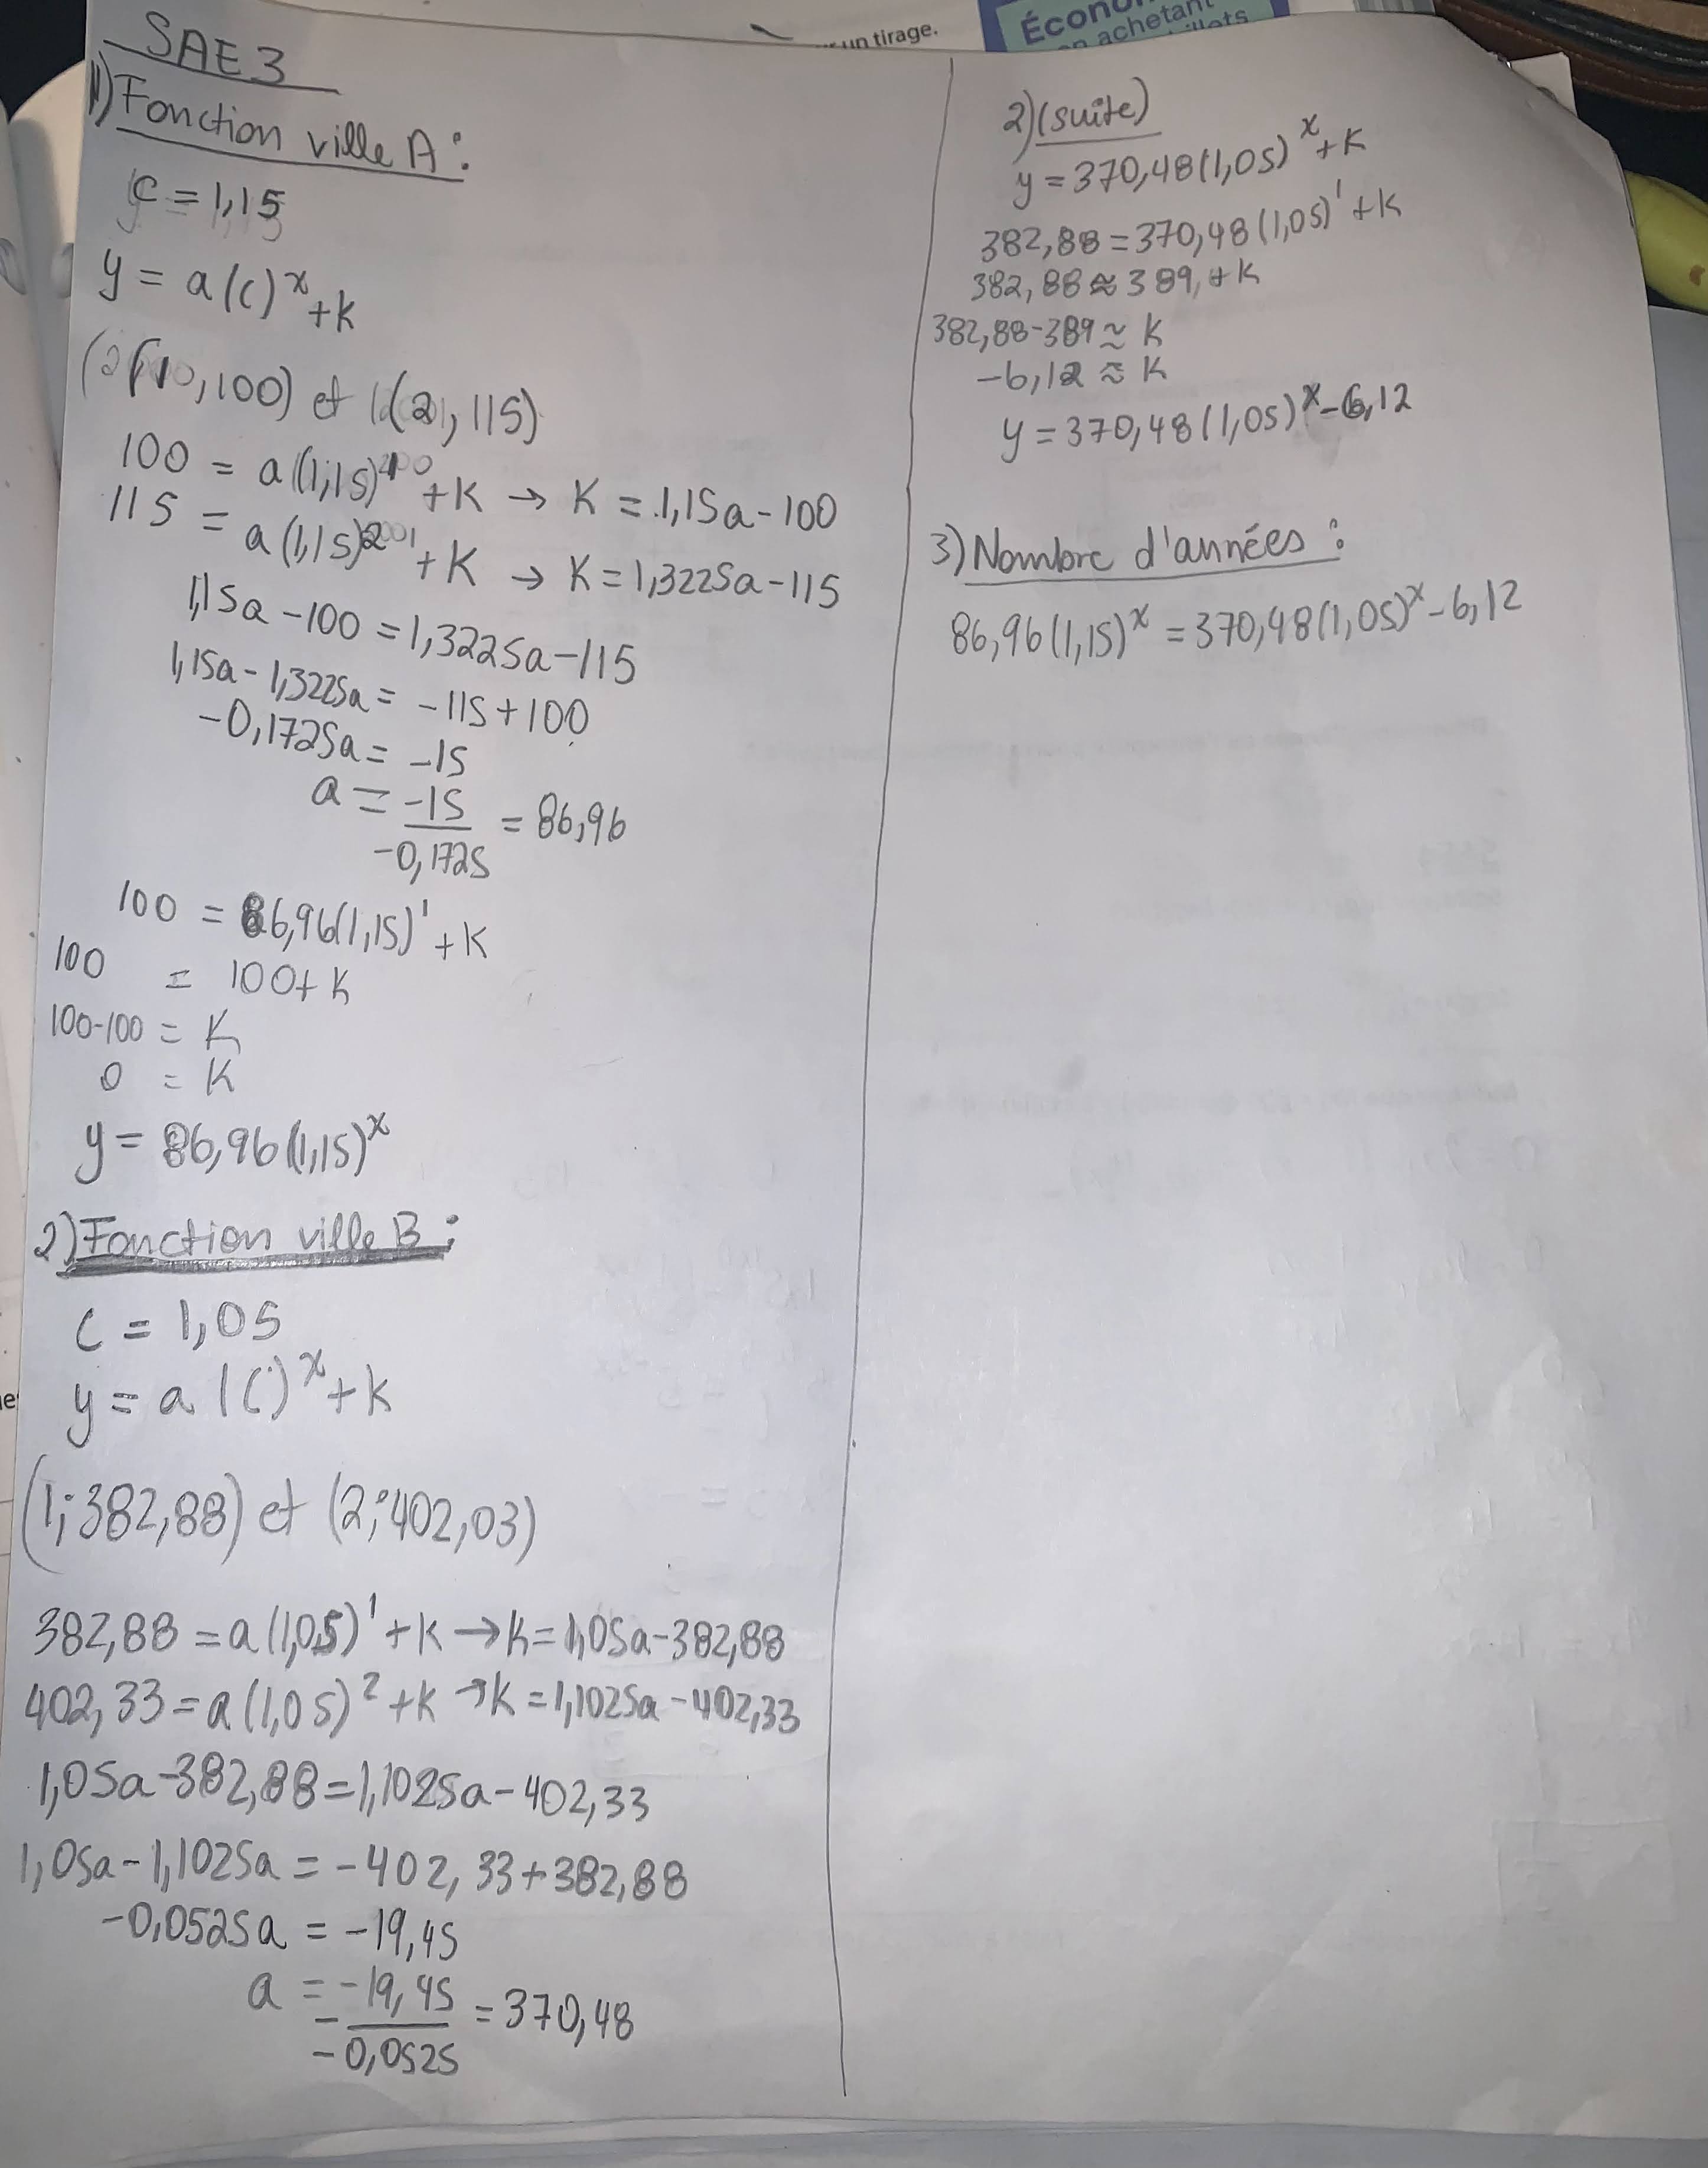 un tirage.
Écono
en achetant
illets
SAE3
1) Fonction ville A :
c = 1,15
y = a(c)^x + K
(1, 100) et (2, 115)
100 = a(1,15)^1 + K → K = 1,15a - 100
115 = a(1,15)^2 + K → K = 1,3225a - 115
1,15a - 100 = 1,3225a - 115
1,15a - 1,3225a = -115 + 100
-0,1725a = -15
a = -15/-0,1725 = 86,96
100 = 86,96(1,15)^1 + K
100 = 100 + K
100-100 = K
0 = K
y = 86,96(1,15)^x
2) Fonction ville B :
c = 1,05
y = a(c)^x + k
(1; 382,88) et (2; 402,03)
382,88 = a(1,05)^1 + k → k = 1,05a - 382,88
402,33 = a(1,05)^2 + k → k = 1,1025a - 402,33
1,05a - 382,88 = 1,1025a - 402,33
1,05a - 1,1025a = -402,33 + 382,88
-0,0525a = -19,45
a = -19,45/-0,0525 = 370,48
2) (suite)
y = 370,48(1,05)^x + K
382,88 = 370,48(1,05)^1 + K
382,88 ≈ 389, + K
382,88-389 ≈ K
-6,12 ≈ K
y = 370,48(1,05)^x - 6,12
3) Nombre d'années :
86,96(1,15)^x = 370,48(1,05)^x - 6,12